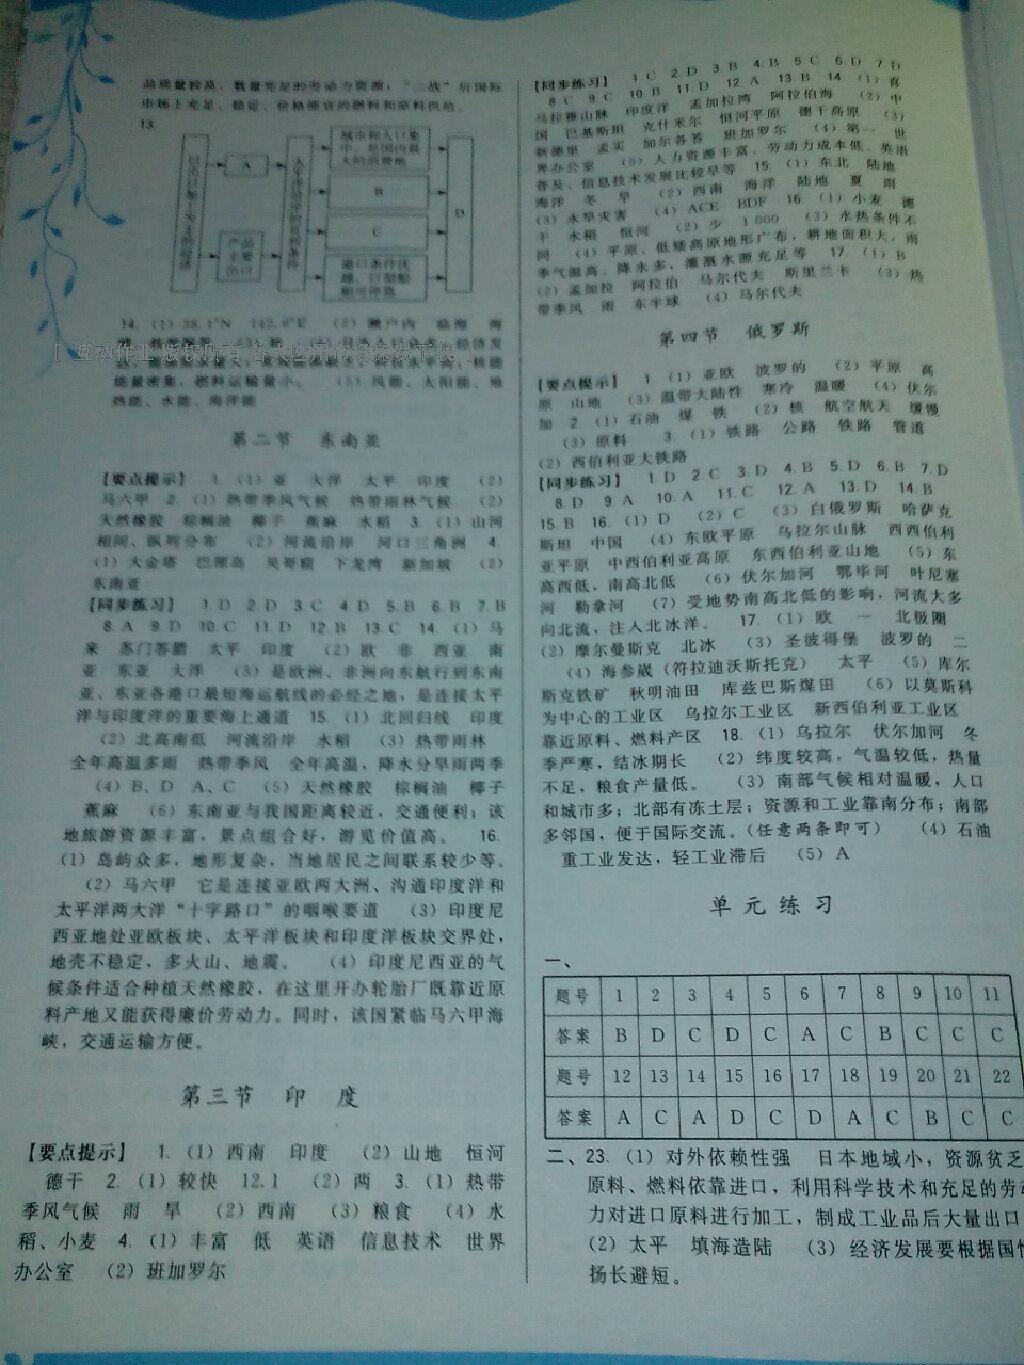 品质量较高、数量充足的劳动力资源；“二战”后国际
市场上充足、稳定、价格低廉的燃料和原料供给。
13.
A
产品
主要
出口
城市和人口集
中，是国内最
大的消费地
B
C
港口条件优
越，巨型船
舶可停靠
D
14. (1) 38.1°N 142.6°E (2) 濑户内 临海
[ 互动作业 版权所有
能量密集，燃料运输量小。 (5) 风能、太阳能、地
热能、水能、海洋能
第二节 东南亚
【要点提示】 1. (1) 亚 大洋 太平 印度 (2)
马六甲 2. (1) 热带季风气候 热带雨林气候 (2)
天然橡胶 棕榈油 椰子 蕉麻 水稻 3. (1) 山河
相间、纵列分布 (2) 河流沿岸 河口三角洲 4.
(1) 大金塔 巴厘岛 吴哥窟 下龙湾 新加坡 (2)
东南亚
【同步练习】 1. D 2. D 3. C 4. D 5. B 6. B 7. B
8. A 9. D 10. C 11. D 12. B 13. C 14. (1) 马
来 苏门答腊 太平 印度 (2) 欧 非 西亚 南
亚 东亚 大洋 (3) 是欧洲、非洲向东航行到东南
亚、东亚各港口最短海运航线的必经之地，是连接太平
洋与印度洋的重要海上通道 15. (1) 北回归线 印度
(2) 北高南低 河流沿岸 水稻 (3) 热带雨林
全年高温多雨 热带季风 全年高温，降水分旱雨两季
(4) B、D A、C (5) 天然橡胶 棕榈油 椰子
蕉麻 (6) 东南亚与我国距离较近，交通便利；该
地旅游资源丰富，景点组合好，游览价值高。 16.
(1) 岛屿众多，地形复杂，当地居民之间联系较少等。
(2) 马六甲 它是连接亚欧两大洲、沟通印度洋和
太平洋两大洋“十字路口”的咽喉要道 (3) 印度尼
西亚地处亚欧板块、太平洋板块和印度洋板块交界处，
地壳不稳定，多火山、地震。 (4) 印度尼西亚的气
候条件适合种植天然橡胶，在这里开办轮胎厂既靠近原
料产地又能获得廉价劳动力。同时，该国紧临马六甲海
峡，交通运输方便。
第三节 印 度
【要点提示】 1. (1) 西南 印度 (2) 山地 恒河
德干 2. (1) 较快 12.1 (2) 两 3. (1) 热带
季风气候 雨 旱 (2) 西南 (3) 粮食 (4) 水
稻、小麦 4. (1) 丰富 低 英语 信息技术 世界
办公室 (2) 班加罗尔
【同步练习】 1. C 2. D 3. B 4. B 5. C 6. D 7. D
8. C 9. C 10. B 11. D 12. A 13. B 14. (1) 喜
马拉雅山脉 印度洋 孟加拉湾 阿拉伯海 (2) 中
国 巴基斯坦 克什米尔 恒河平原 德干高原 (3)
新德里 孟买 加尔各答 班加罗尔 (4) 第一 世
界办公室 (5) 人力资源丰富、劳动力成本低、英语
普及、信息技术发展比较早等 15. (1) 东北 陆地
海洋 冬 旱 (2) 西南 海洋 陆地 夏 雨
(3) 水旱灾害 (4) ACE BDF 16. (1) 小麦 德
干 水稻 恒河 (2) 少 1 000 (3) 水热条件不
同 (4) 平原、低矮高原地形广布，耕地面积大，南
季气温高、降水多、灌溉水源充足等 17. (1) B
(2) 孟加拉 阿拉伯 马尔代夫 斯里兰卡 (3) 热
带季风 雨 东半球 (4) 马尔代夫
第四节 俄罗斯
【要点提示】 1. (1) 亚欧 波罗的 (2) 平原 高
原 山地 (3) 温带大陆性 寒冷 温暖 (4) 伏尔
加 2. (1) 石油 煤 铁 (2) 核 航空航天 缓慢
(3) 原料 3. (1) 铁路 公路 铁路 管道
(2) 西伯利亚大铁路
【同步练习】 1. D 2. C 3. D 4. B 5. D 6. B 7. D
8. D 9. A 10. A 11. C 12. A 13. D 14. B
15. B 16. (1) D (2) C (3) 白俄罗斯 哈萨克
斯坦 中国 (4) 东欧平原 乌拉尔山脉 西西伯利
亚平原 中西伯利亚高原 东西伯利亚山地 (5) 东
高西低，南高北低 (6) 伏尔加河 鄂毕河 叶尼塞
河 勒拿河 (7) 受地势南高北低的影响，河流大多
向北流，注入北冰洋。 17. (1) 欧 一 北极圈
(2) 摩尔曼斯克 北冰 (3) 圣彼得堡 波罗的 二
(4) 海参崴（符拉迪沃斯托克） 太平 (5) 库尔
斯克铁矿 秋明油田 库兹巴斯煤田 (6) 以莫斯科
为中心的工业区 乌拉尔工业区 新西伯利亚工业区
靠近原料、燃料产区 18. (1) 乌拉尔 伏尔加河 冬
季严寒，结冰期长 (2) 纬度较高，气温较低，热量
不足，粮食产量低。 (3) 南部气候相对温暖，人口
和城市多；北部有冻土层；资源和工业靠南分布；南部
多邻国，便于国际交流。（任意两条即可） (4) 石油
重工业发达，轻工业滞后 (5) A
单元练习
一、
题号 1 2 3 4 5 6 7 8 9 10 11
答案 B D C D C A C B C C C
题号 12 13 14 15 16 17 18 19 20 21 22
答案 A C A D C D A C B C C
二、23. (1) 对外依赖性强 日本地域小，资源贫乏
原料、燃料依靠进口，利用科学技术和充足的劳动
力对进口原料进行加工，制成工业品后大量出口
(2) 太平 填海造陆 (3) 经济发展要根据国情
扬长避短。